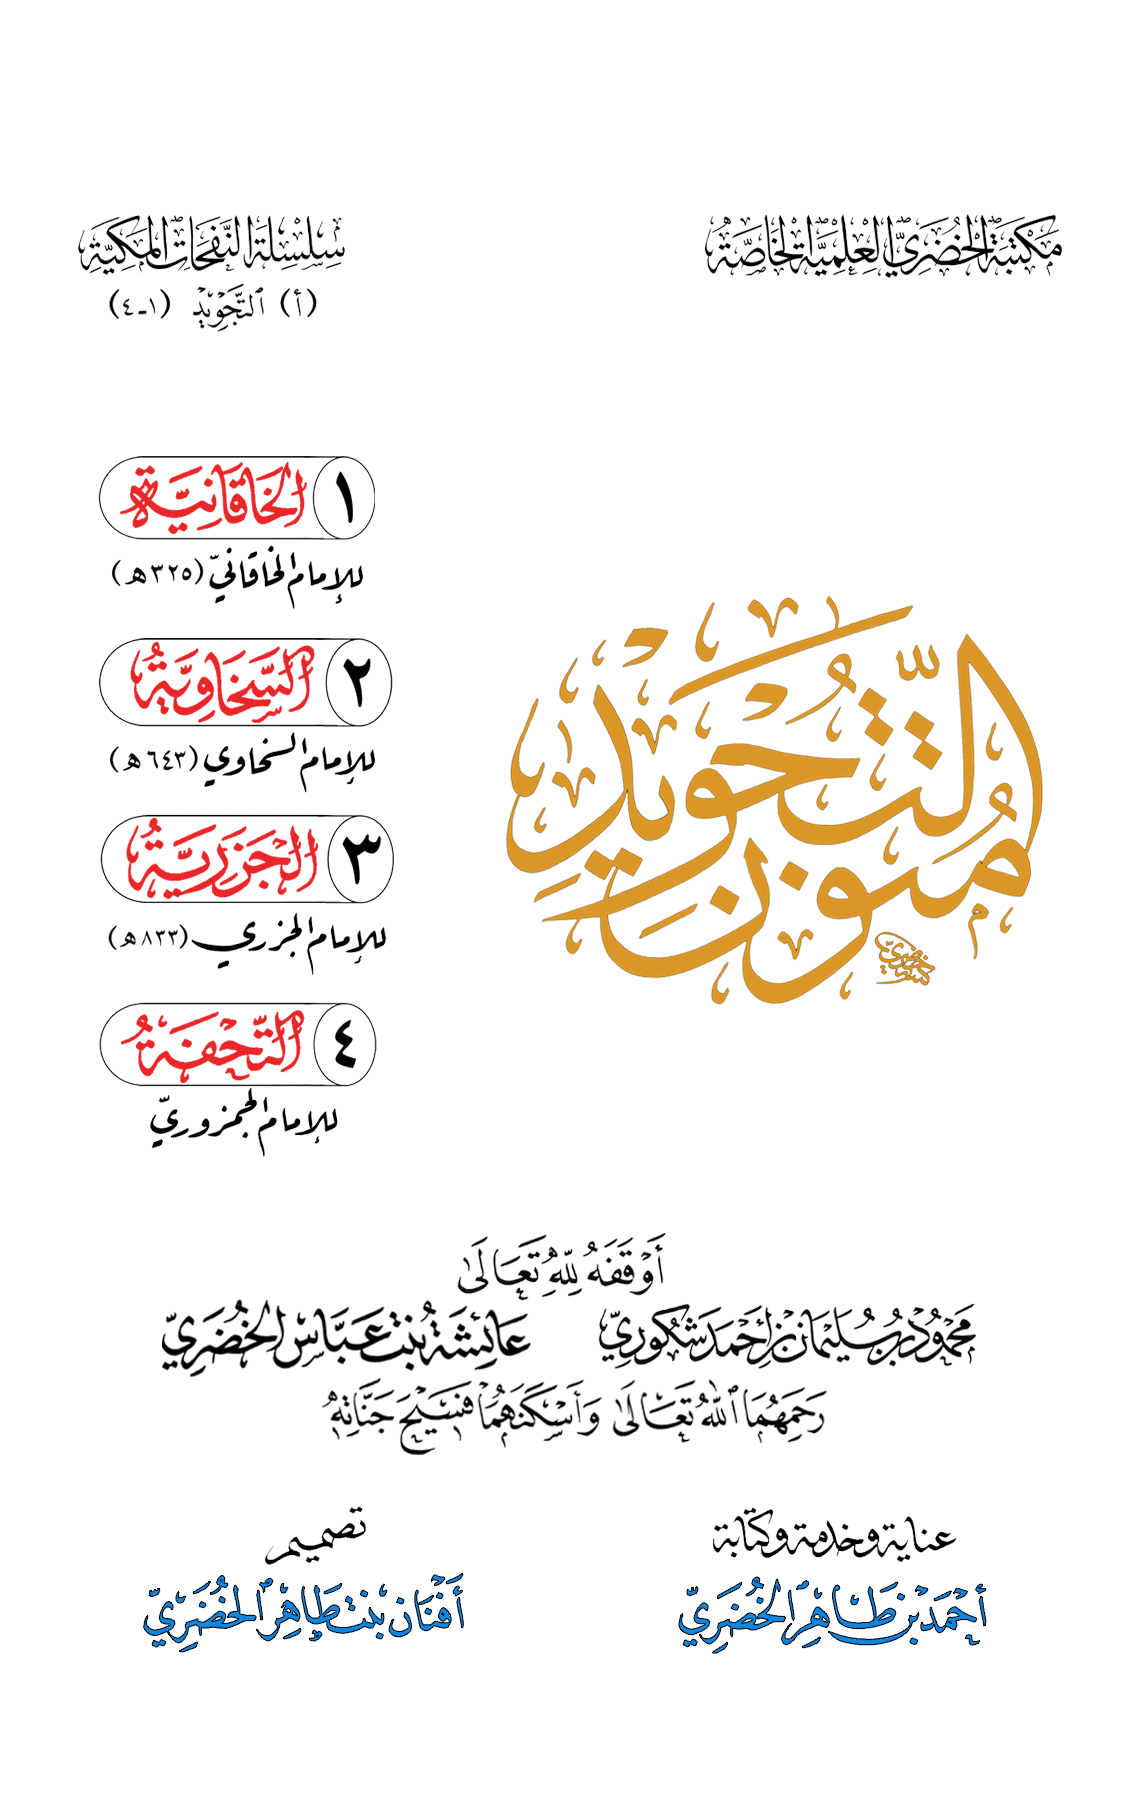 مَكْتَبَةُ الْخُضَرِيِّ الْعِلْمِيَّةُ الْخَاصَّةُ
سِلْسِلَةُ النَّفَحَاتِ الْمَكِّيَّةِ
(أ) التَّجْوِيدُ (١-٤)
مُتُونُ التَّجْوِيدِ
١ الْخَاقَانِيَّةُ
للإمام الخاقانيّ (٣٢٥هـ)
٢ السَّخَاوِيَّةُ
للإمام السخاوي (٦٤٣هـ)
٣ الْجَزَرِيَّةُ
للإمام الجزري (٨٣٣هـ)
٤ التُّحْفَةُ
للإمام الجمزوريّ
أَوْقَفَهُ لِلَّهِ تَعَالَى
مَحْمُودُ بْنُ سُلَيْمَانَ بْنِ أَحْمَدَ شَكُورِيّ
عَائِشَةُ بِنْتُ عَبَّاسٍ الْخُضَرِيِّ
رَحِمَهُمَا اللَّهُ تَعَالَى وَأَسْكَنَهُمَا فَسِيحَ جَنَّاتِهِ
عناية وخدمة وكتابة
أَحْمَدُ بْنُ طَاهِرٍ الْخُضَرِيِّ
تصميم
أَفْنَانُ بِنْتُ طَاهِرٍ الْخُضَرِيِّ